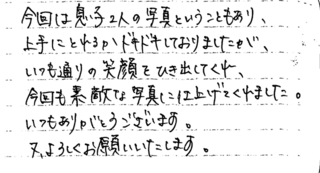 今回は息子2人の写真ということもあり、
上手にとれるかドキドキしておりましたが、
いつも通りの笑顔をひき出してくれ、
今回も素敵な写真に仕上げてくれました。
いつもありがとうございます。
又、よろしくお願いいたします。